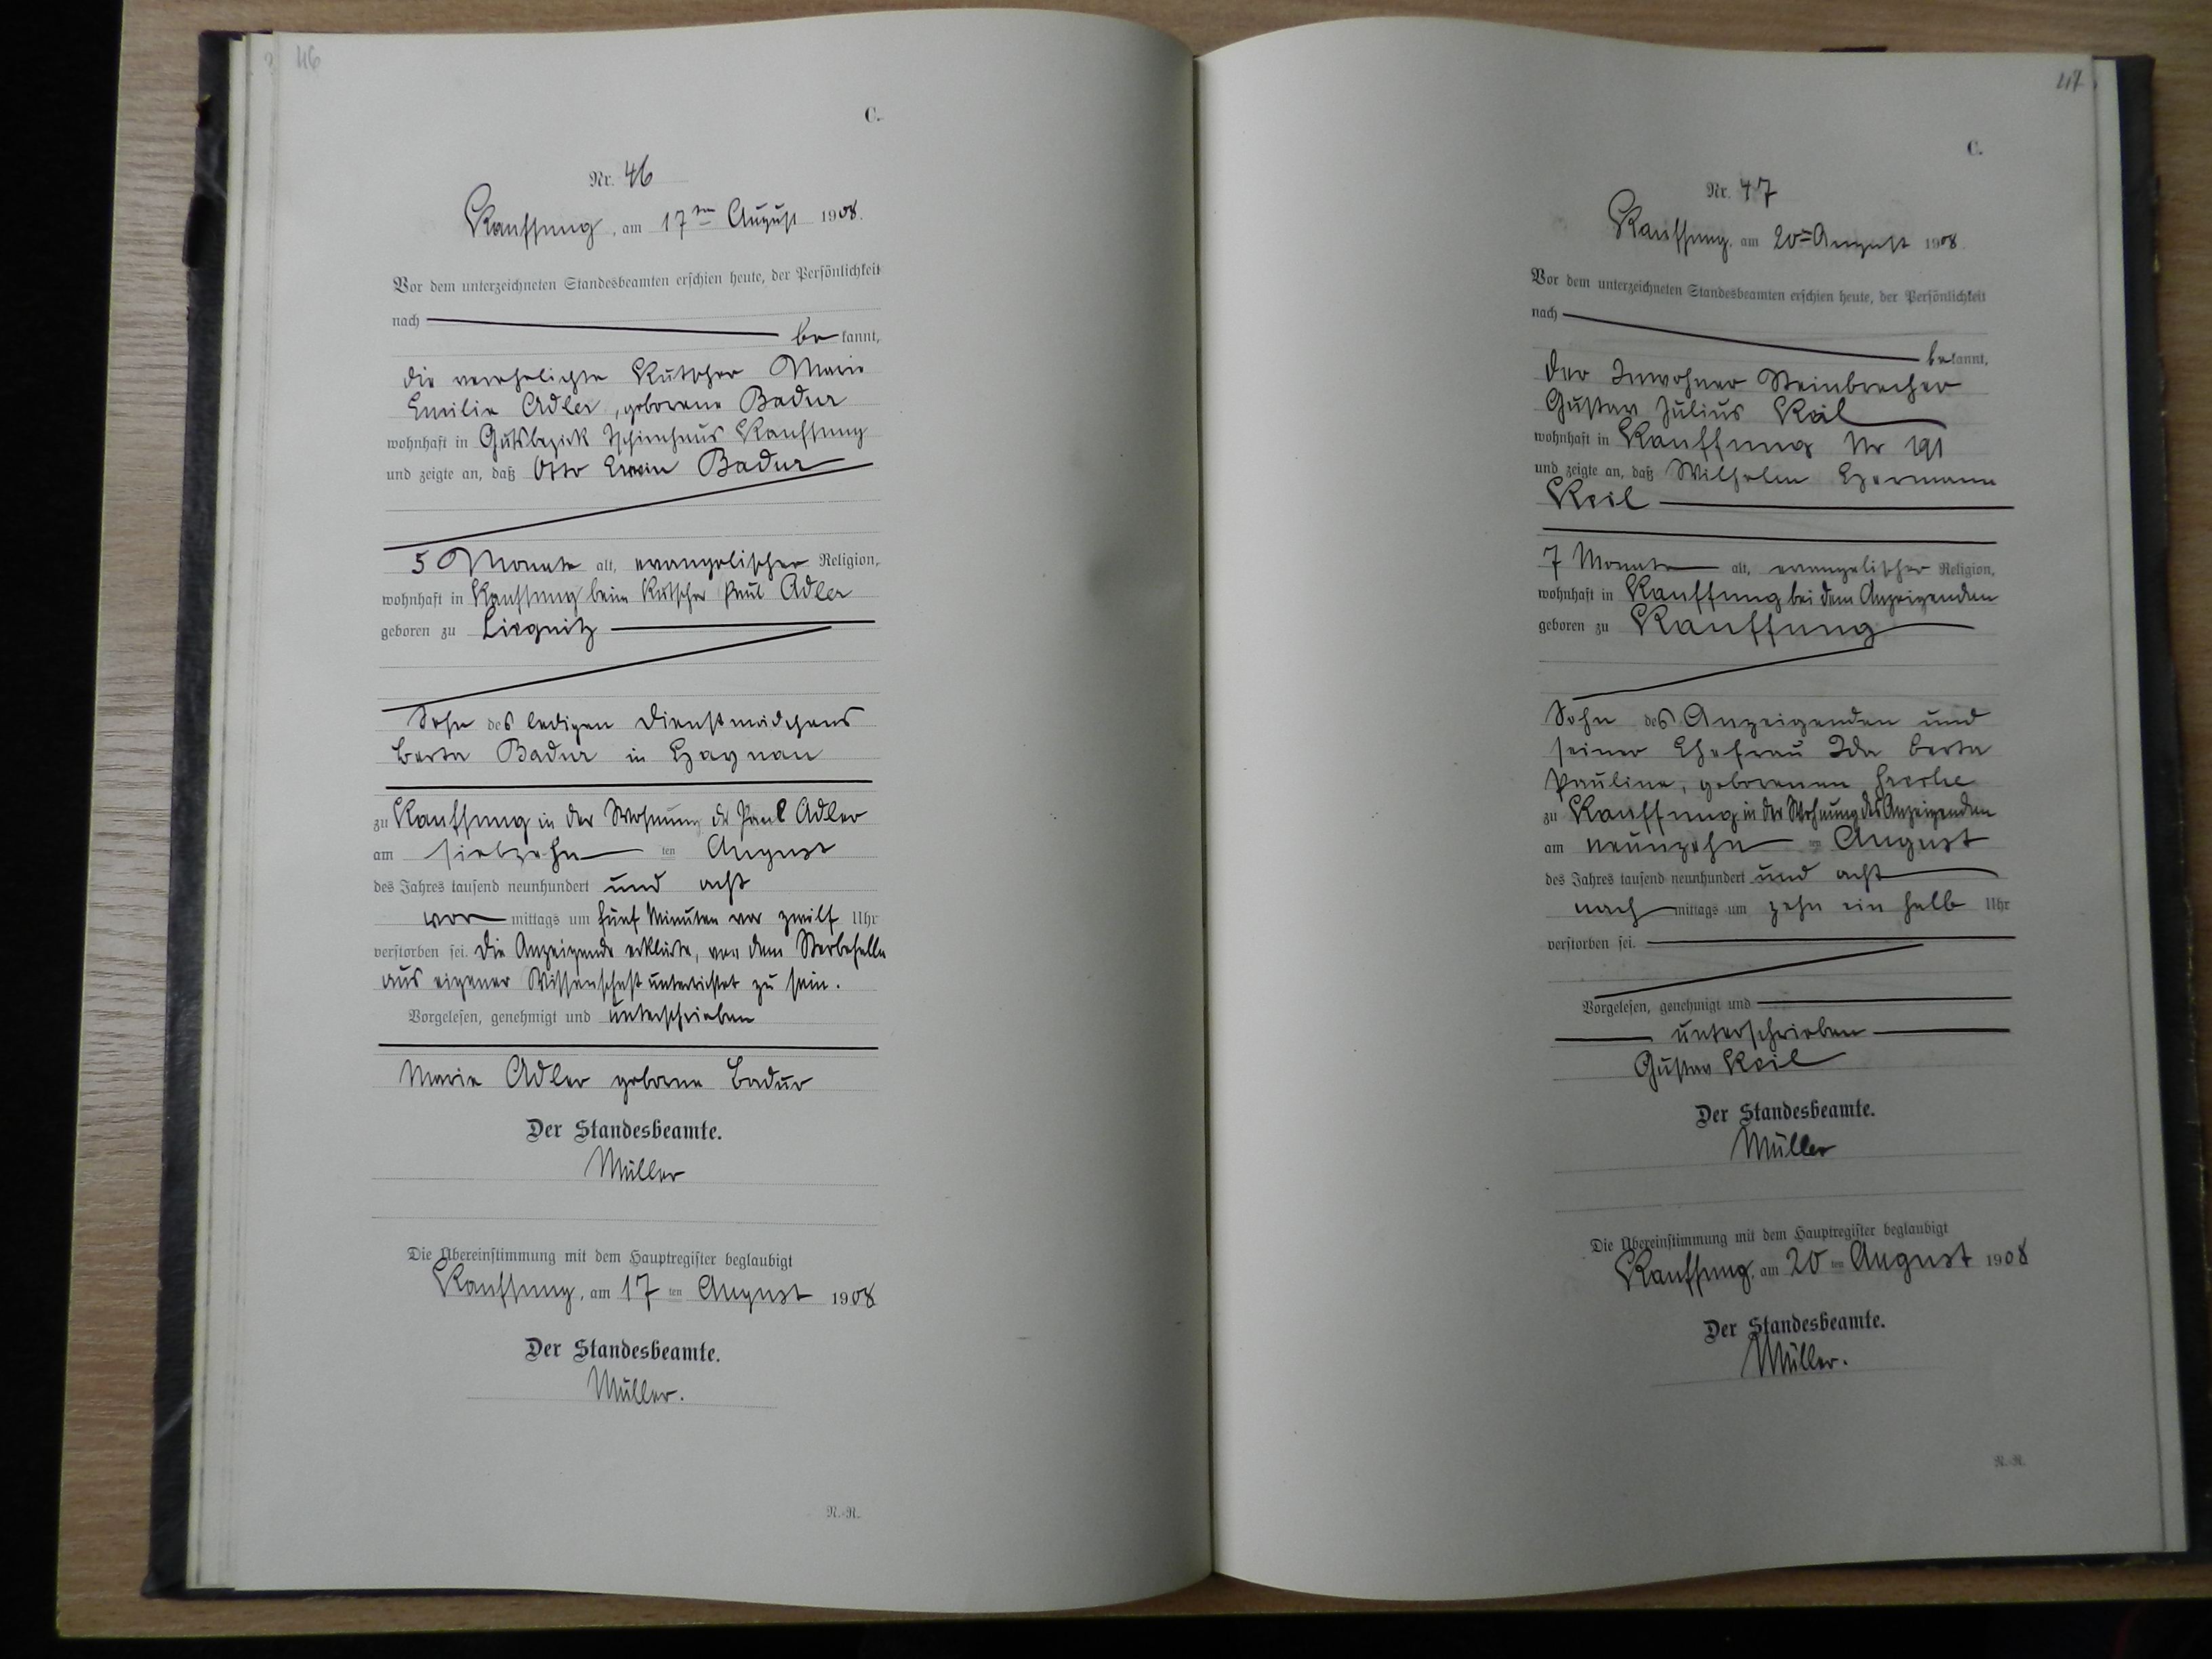 46
C.
Nr. 46
Kauffung, am 17ten August 1908.
Vor dem unterzeichneten Standesbeamten erschien heute, der Persönlichkeit
nach be kannt,
die verehelichte Kutscher Marie
Emilie Adler, geborene Badur
wohnhaft in Gutsbezirk Tschirnhaus Kauffung
und zeigte an, daß Otto Erwin Badur
5 Monate alt, evangelischer Religion,
wohnhaft in Kauffung beim Kutscher Paul Adler
geboren zu Liegnitz
Sohn des ledigen Dienstmädchens
Berta Badur in Haynau
zu Kauffung in der Wohnung des Paul Adler
am siebzehn ten August
des Jahres tausend neunhundert und acht
vor mittags um fünf Minuten vor zwölf Uhr
verstorben sei. Die Anzeigende erklärte, von dem Sterbefalle
aus eigener Wissenschaft unterrichtet zu sein.
Vorgelesen, genehmigt und unterschrieben
Marie Adler geborne Badur
Der Standesbeamte.
Müller
Die Übereinstimmung mit dem Hauptregister beglaubigt
Kauffung, am 17 ten August 1908
Der Standesbeamte.
Müller.
N.-R.
47
C.
Nr. 47
Kauffung, am 20ten August 1908.
Vor dem unterzeichneten Standesbeamten erschien heute, der Persönlichkeit
nach bekannt,
der Inwohner Steinbrecher
Gustav Julius Keil
wohnhaft in Kauffung Nr 191
und zeigte an, daß Wilhelm Hermann
Keil
7 Monate alt, evangelischer Religion,
wohnhaft in Kauffung bei dem Anzeigenden
geboren zu Kauffung
Sohn des Anzeigenden und
seiner Ehefrau Ida Berta
Pauline, geborenen
zu Kauffung in der Wohnung des Anzeigenden
am neunzehn ten August
des Jahres tausend neunhundert und acht
nach mittags um zehn ein halb Uhr
verstorben sei.
Vorgelesen, genehmigt und
unterschrieben
Gustav Keil
Der Standesbeamte.
Müller
Die Übereinstimmung mit dem Hauptregister beglaubigt
Kauffung, am 20 ten August 1908
Der Standesbeamte.
Müller.
N.-R.